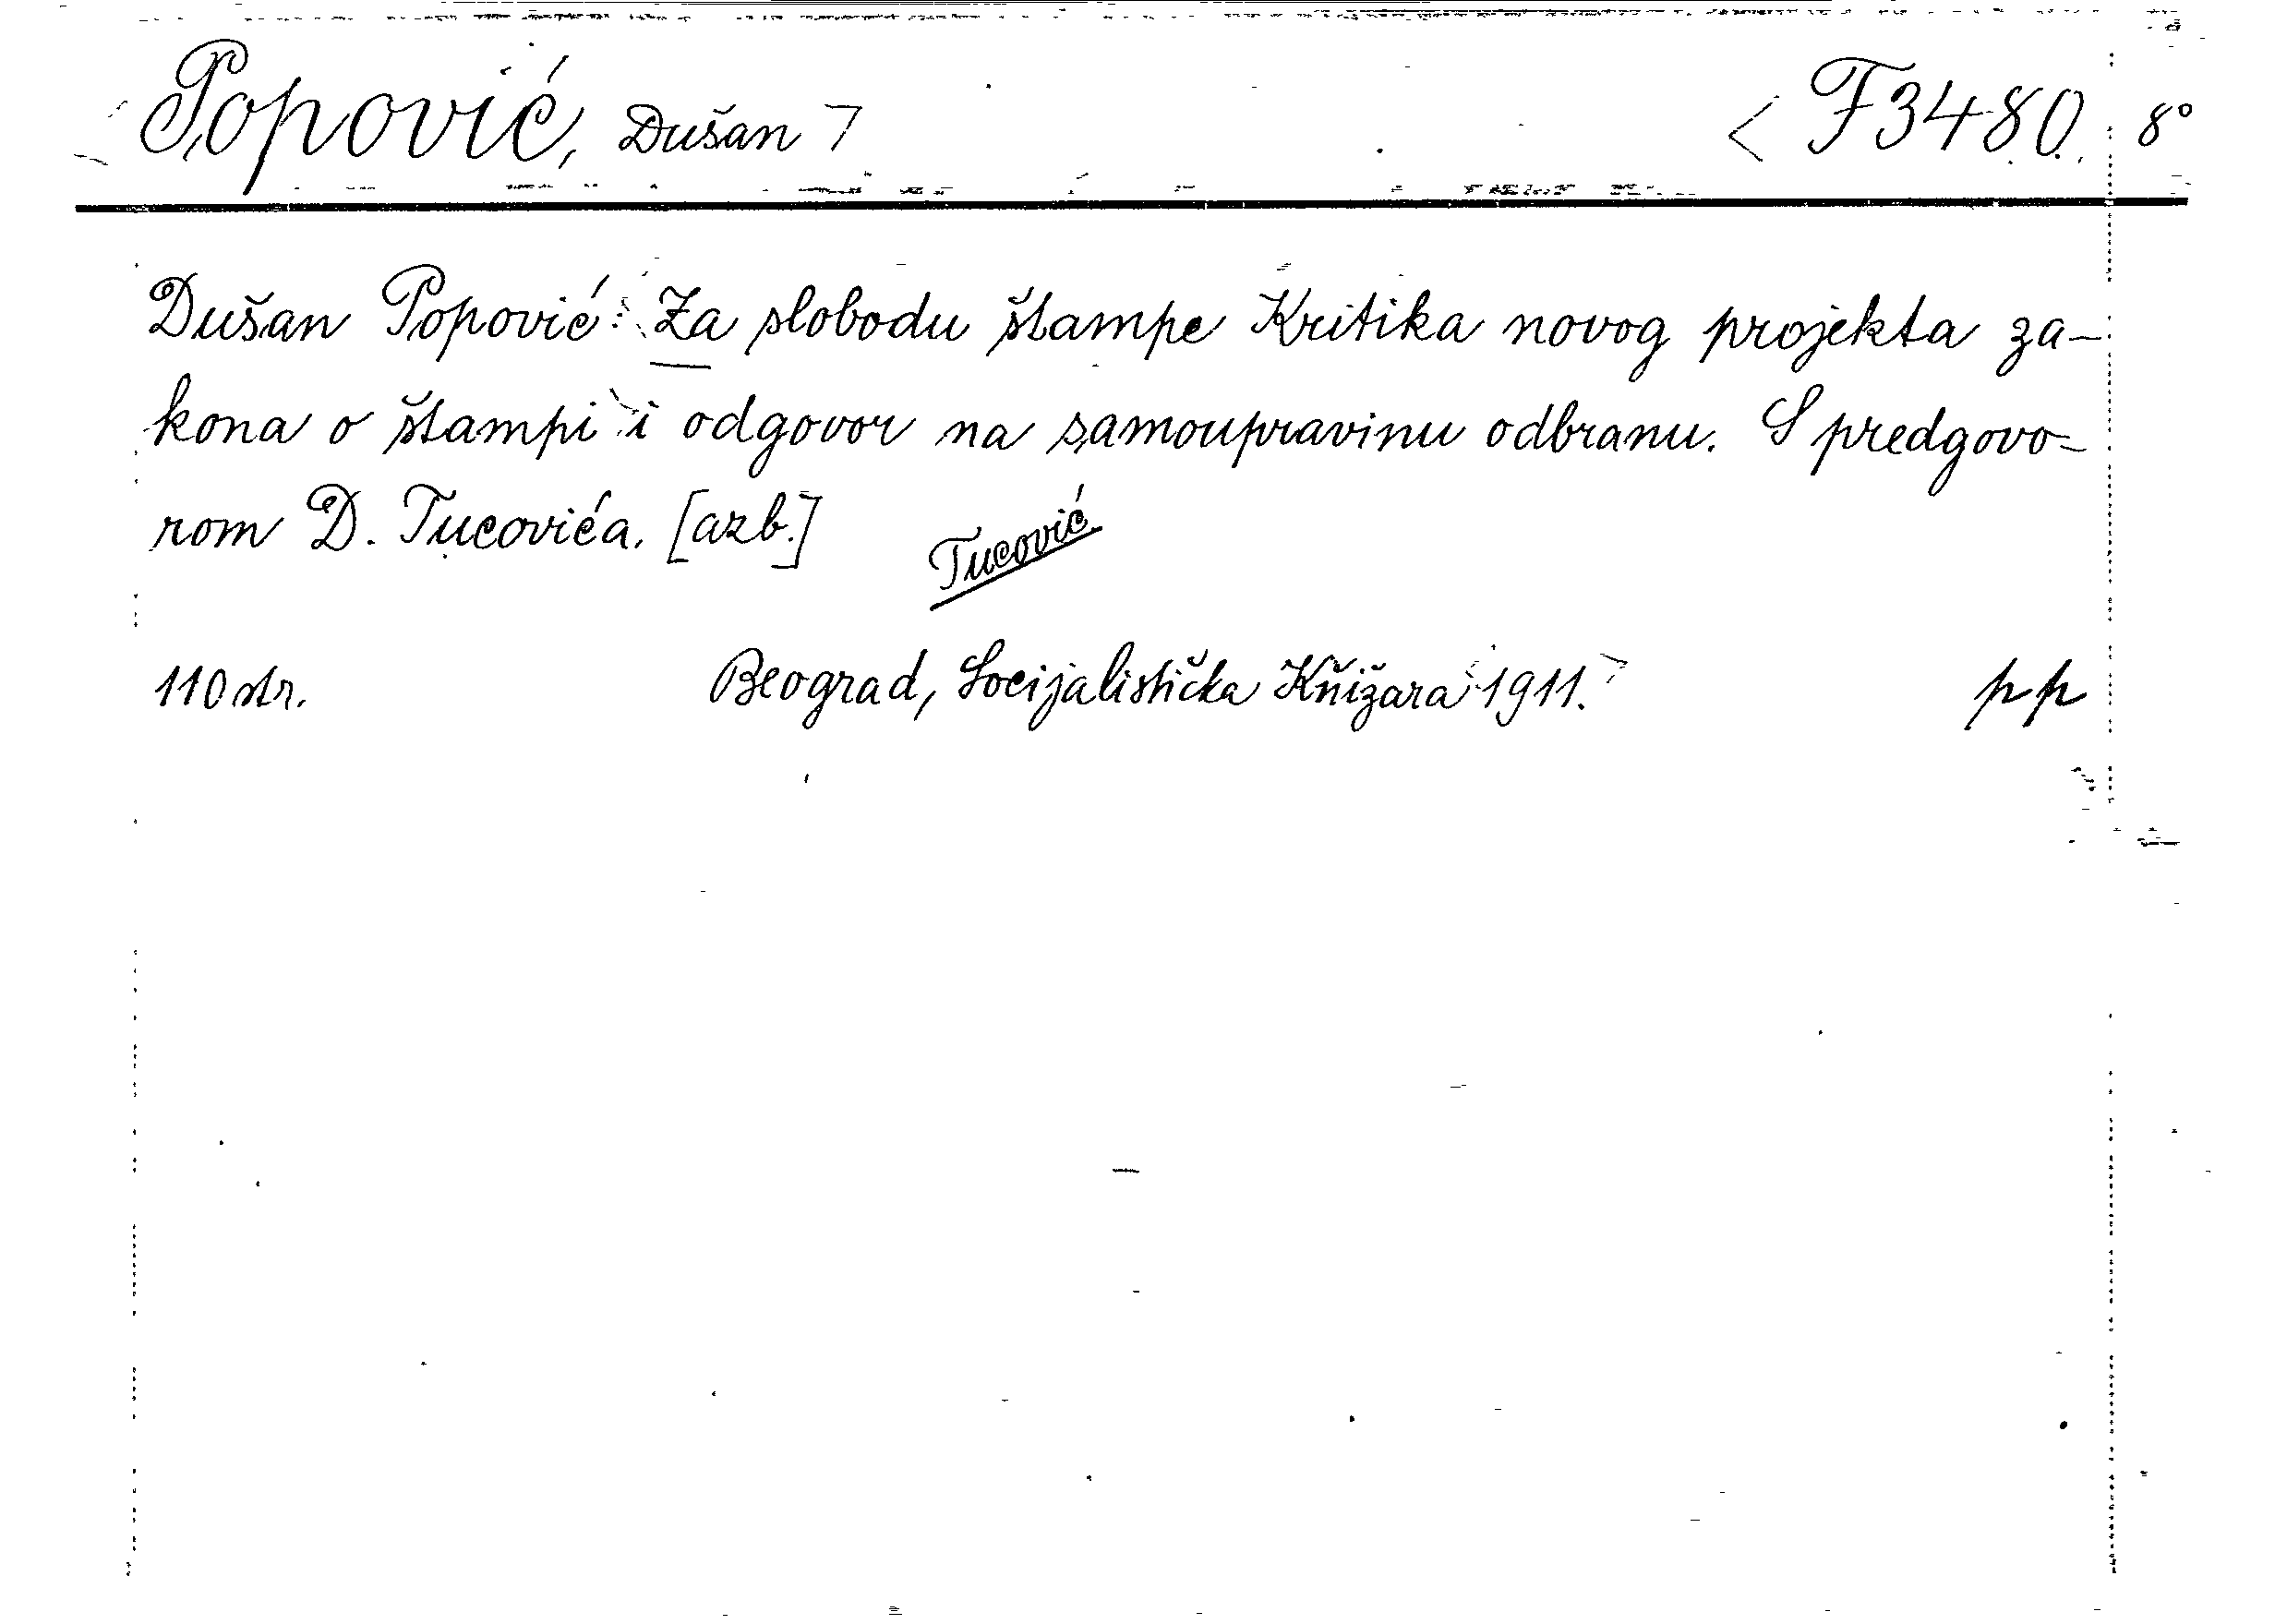 Popović, Dušan F3480 8°
Dušan Popović: Za slobodu štampe Kritika novog projekta za-
kona o štampi i odgovor na samoupravinu odbranu. S predgovo-
rom D. Tucovića. [azb.]
Tucović
110 str. Beograd, Socijalistička Kňižara 1911. pp